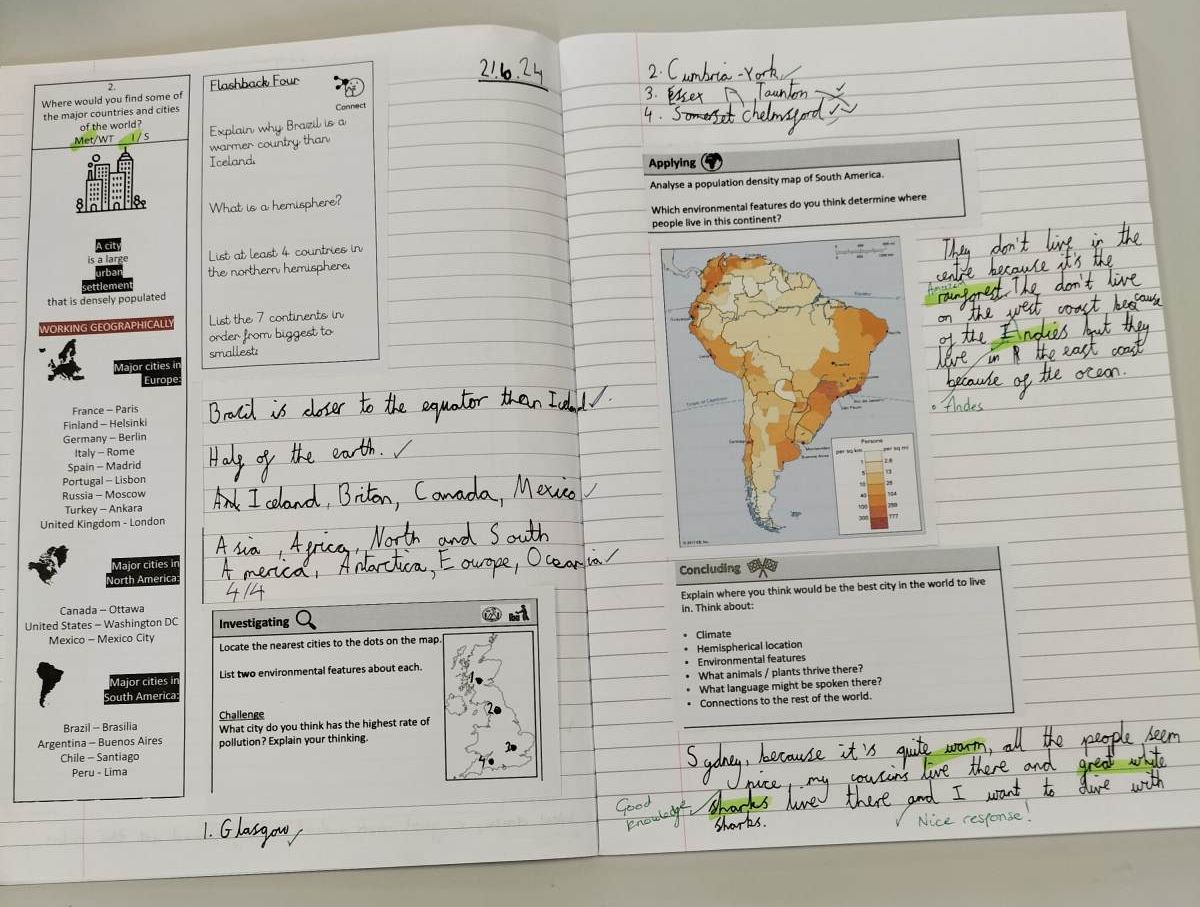 2.
Where would you find some of
the major countries and cities
of the world?
Met/WT I/S
A city
is a large
urban
settlement
that is densely populated
WORKING GEOGRAPHICALLY
Major cities in
Europe:
France – Paris
Finland – Helsinki
Germany – Berlin
Italy – Rome
Spain – Madrid
Portugal – Lisbon
Russia – Moscow
Turkey – Ankara
United Kingdom - London
Major cities in
North America:
Canada – Ottawa
United States – Washington DC
Mexico – Mexico City
Major cities in
South America:
Brazil – Brasilia
Argentina – Buenos Aires
Chile – Santiago
Peru - Lima
Flashback Four
Connect
Explain why Brazil is a
warmer country than
Iceland.
What is a hemisphere?
List at least 4 countries in
the northern hemisphere.
List the 7 continents in
order from biggest to
smallest:
21.6.24
Brazil is closer to the equator then Iceland
Half of the earth.
Iceland, Briton, Canada, Mexico
Asia, Africa, North and South
America, Antarctica, Eourope, Oceania
4/4
Investigating
Locate the nearest cities to the dots on the map.
List two environmental features about each.
Challenge
What city do you think has the highest rate of
pollution? Explain your thinking.
1
2
3
4
1. Glasgow
2. Cumbria - York
3. Essex Taunton
4. Somerset Chelmsford
Applying
Analyse a population density map of South America.
Which environmental features do you think determine where
people live in this continent?
Equator
Tropic of Capricorn
Rio de Janeiro
Sao Paulo
Santiago
Montevideo
Buenos Aires
Persons
per sq km
per sq mi
1
2.6
5
13
10
26
40
104
100
259
300
777
They don't live in the
centre because it's the
Amazon
rainforest. The don't live
on the west coast because
of the Indies but they
live in the east coast
because of the ocean.
• Andes
Concluding
Explain where you think would be the best city in the world to live
in. Think about:
• Climate
• Hemispherical location
• Environmental features
• What animals / plants thrive there?
• What language might be spoken there?
• Connections to the rest of the world.
Sydney, because it's quite warm, all the people seem
nice, my cousins live there and great white
sharks live there and I want to dive with
sharks.
Good
knowledge
Nice response!